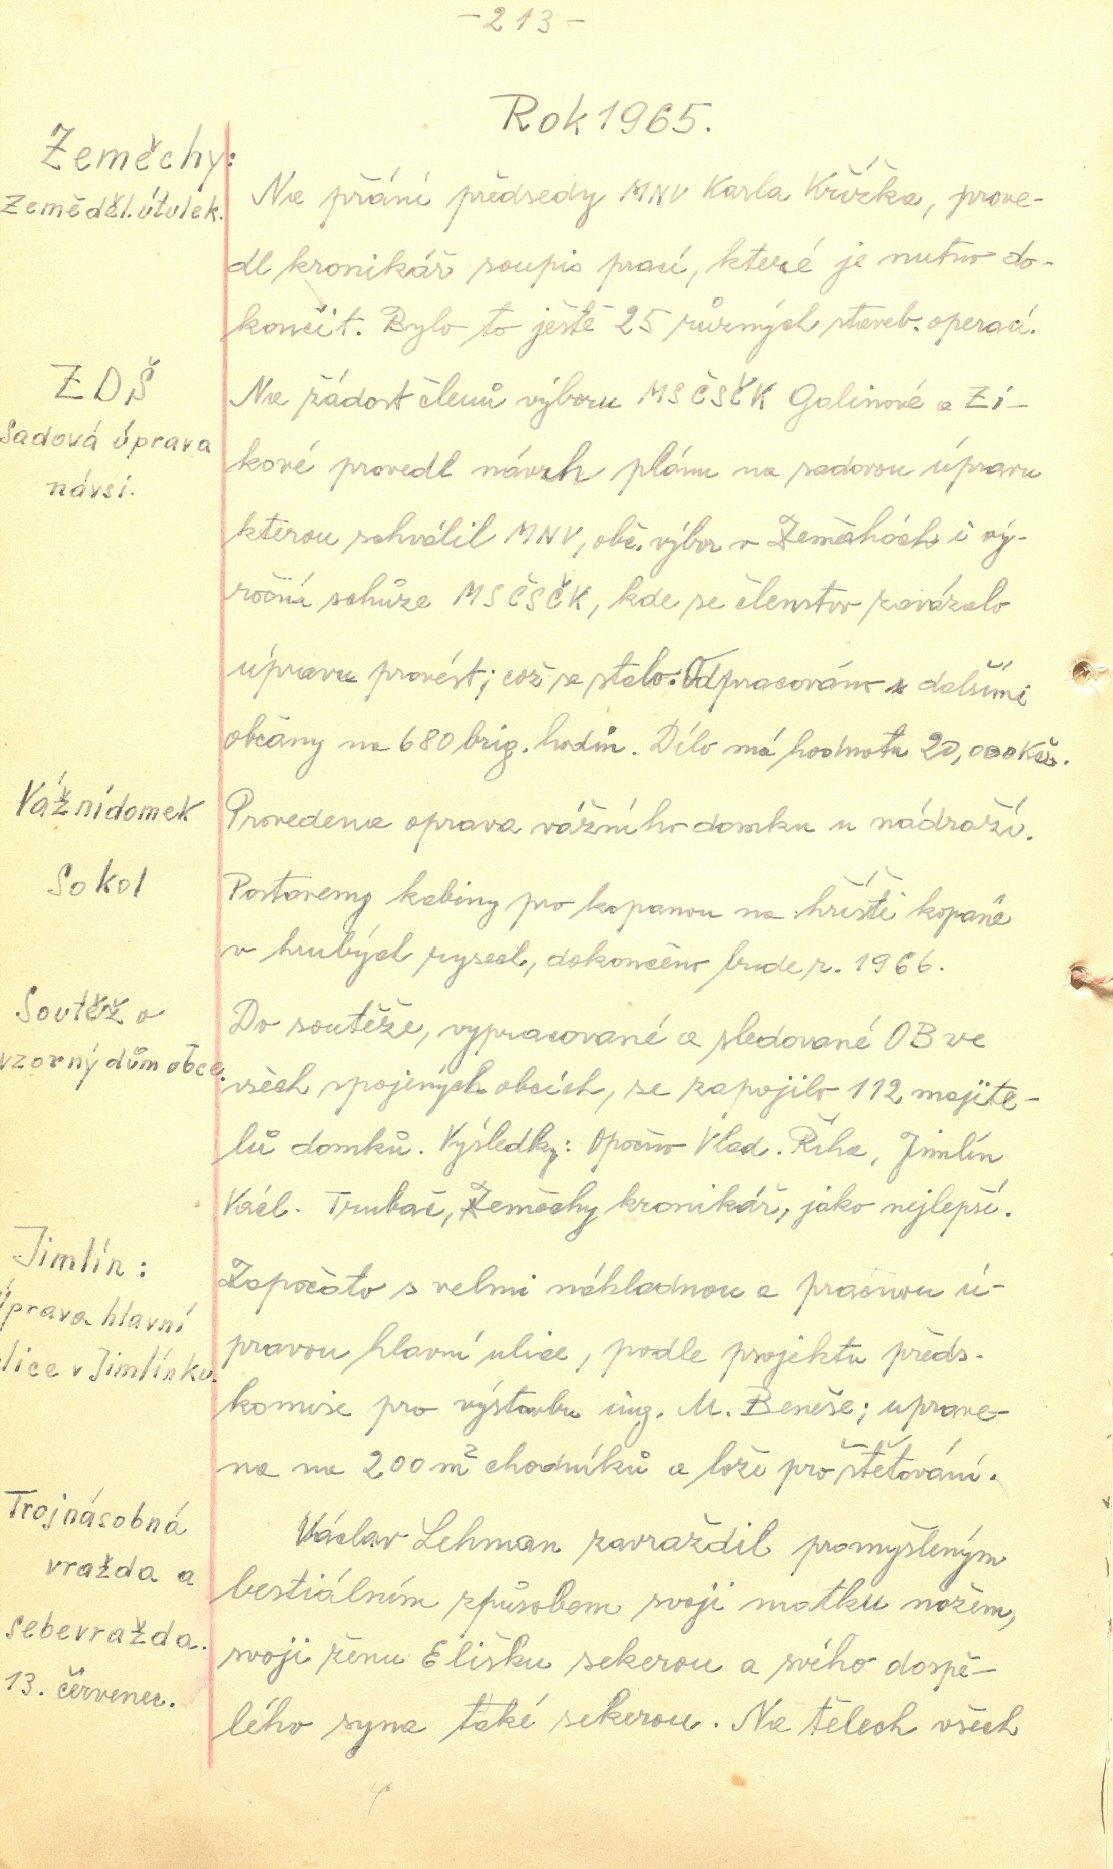 -213-
Rok 1965.
Zeměchy:
Zeměděl. útulek.
Na přání předsedy MNV Karla Křížka, prove-
dl kronikář soupis prací, které je nutno do-
končit. Bylo to ještě 25 různých staveb. operací.
ZDŠ
Sadová úprava
návsi.
Na žádost členů výboru MSČSČK Galinové a Zi-
kové provedl návrh plánu na sadovou úpravu
kterou schválil MNV, obč. výbor v Zeměchách i vý-
roční schůze MSČSČK, kde se členstvo zavázalo
úpravu provést; což se stalo. Odpracováno s dalšími
občany na 680 brig. hodin. Dílo má hodnotu 20,000 Kčs.
Vážní domek
Provedena oprava vážního domku u nádraží.
Sokol
Postaveny kabiny pro kopanou na hřišti kopané
v hrubých rysech, dokončeno bude r. 1966.
Soutěž o
vzorný dům obce.
Do soutěže, vypracované a sledované OB ve
všech spojených obcích, se zapojilo 112 majite-
lů domků. Výsledky: Opočno Vlad. Říha, Jimlín
Václ. Trubač, Zeměchy kronikář, jako nejlepší.
Jimlín:
Úprava hlavní
ulice v Jimlínku.
Započato s velmi nákladnou a pracnou ú-
pravou hlavní ulice, podle projektu předs.
komise pro výstavbu ing. M. Beneše; uprave-
no na 200 m² chodníků a lože pro štětování.
Trojnásobná
vražda a
sebevražda.
13. červenec.
Václav Lehman zavraždil promyšleným
bestiálním způsobem svoji matku nožem,
svoji ženu Elišku sekerou a svého dospě-
lého syna také sekerou. Na tělech všech